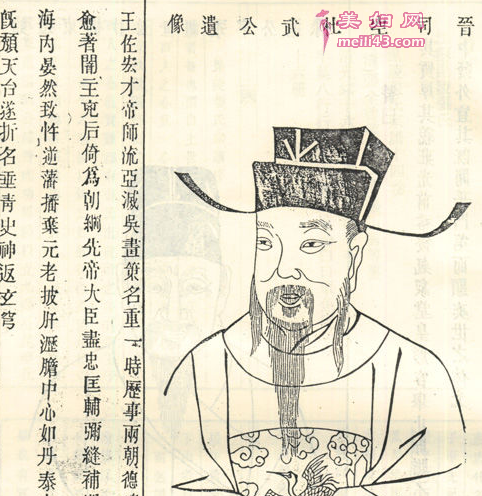 晉司空壯武公遺像
王佐宏才帝師流亞滅吳畫策名重一時歷事兩朝德
愈著闇王后倚爲朝綱先帝大臣盡忠匡輔彌縫補
海內晏然致忤逆藩播棄元老披肝瀝膽中心如丹泰
旣頹天台遂折名垂靑史神返玄穹
美妇网
meili43.com